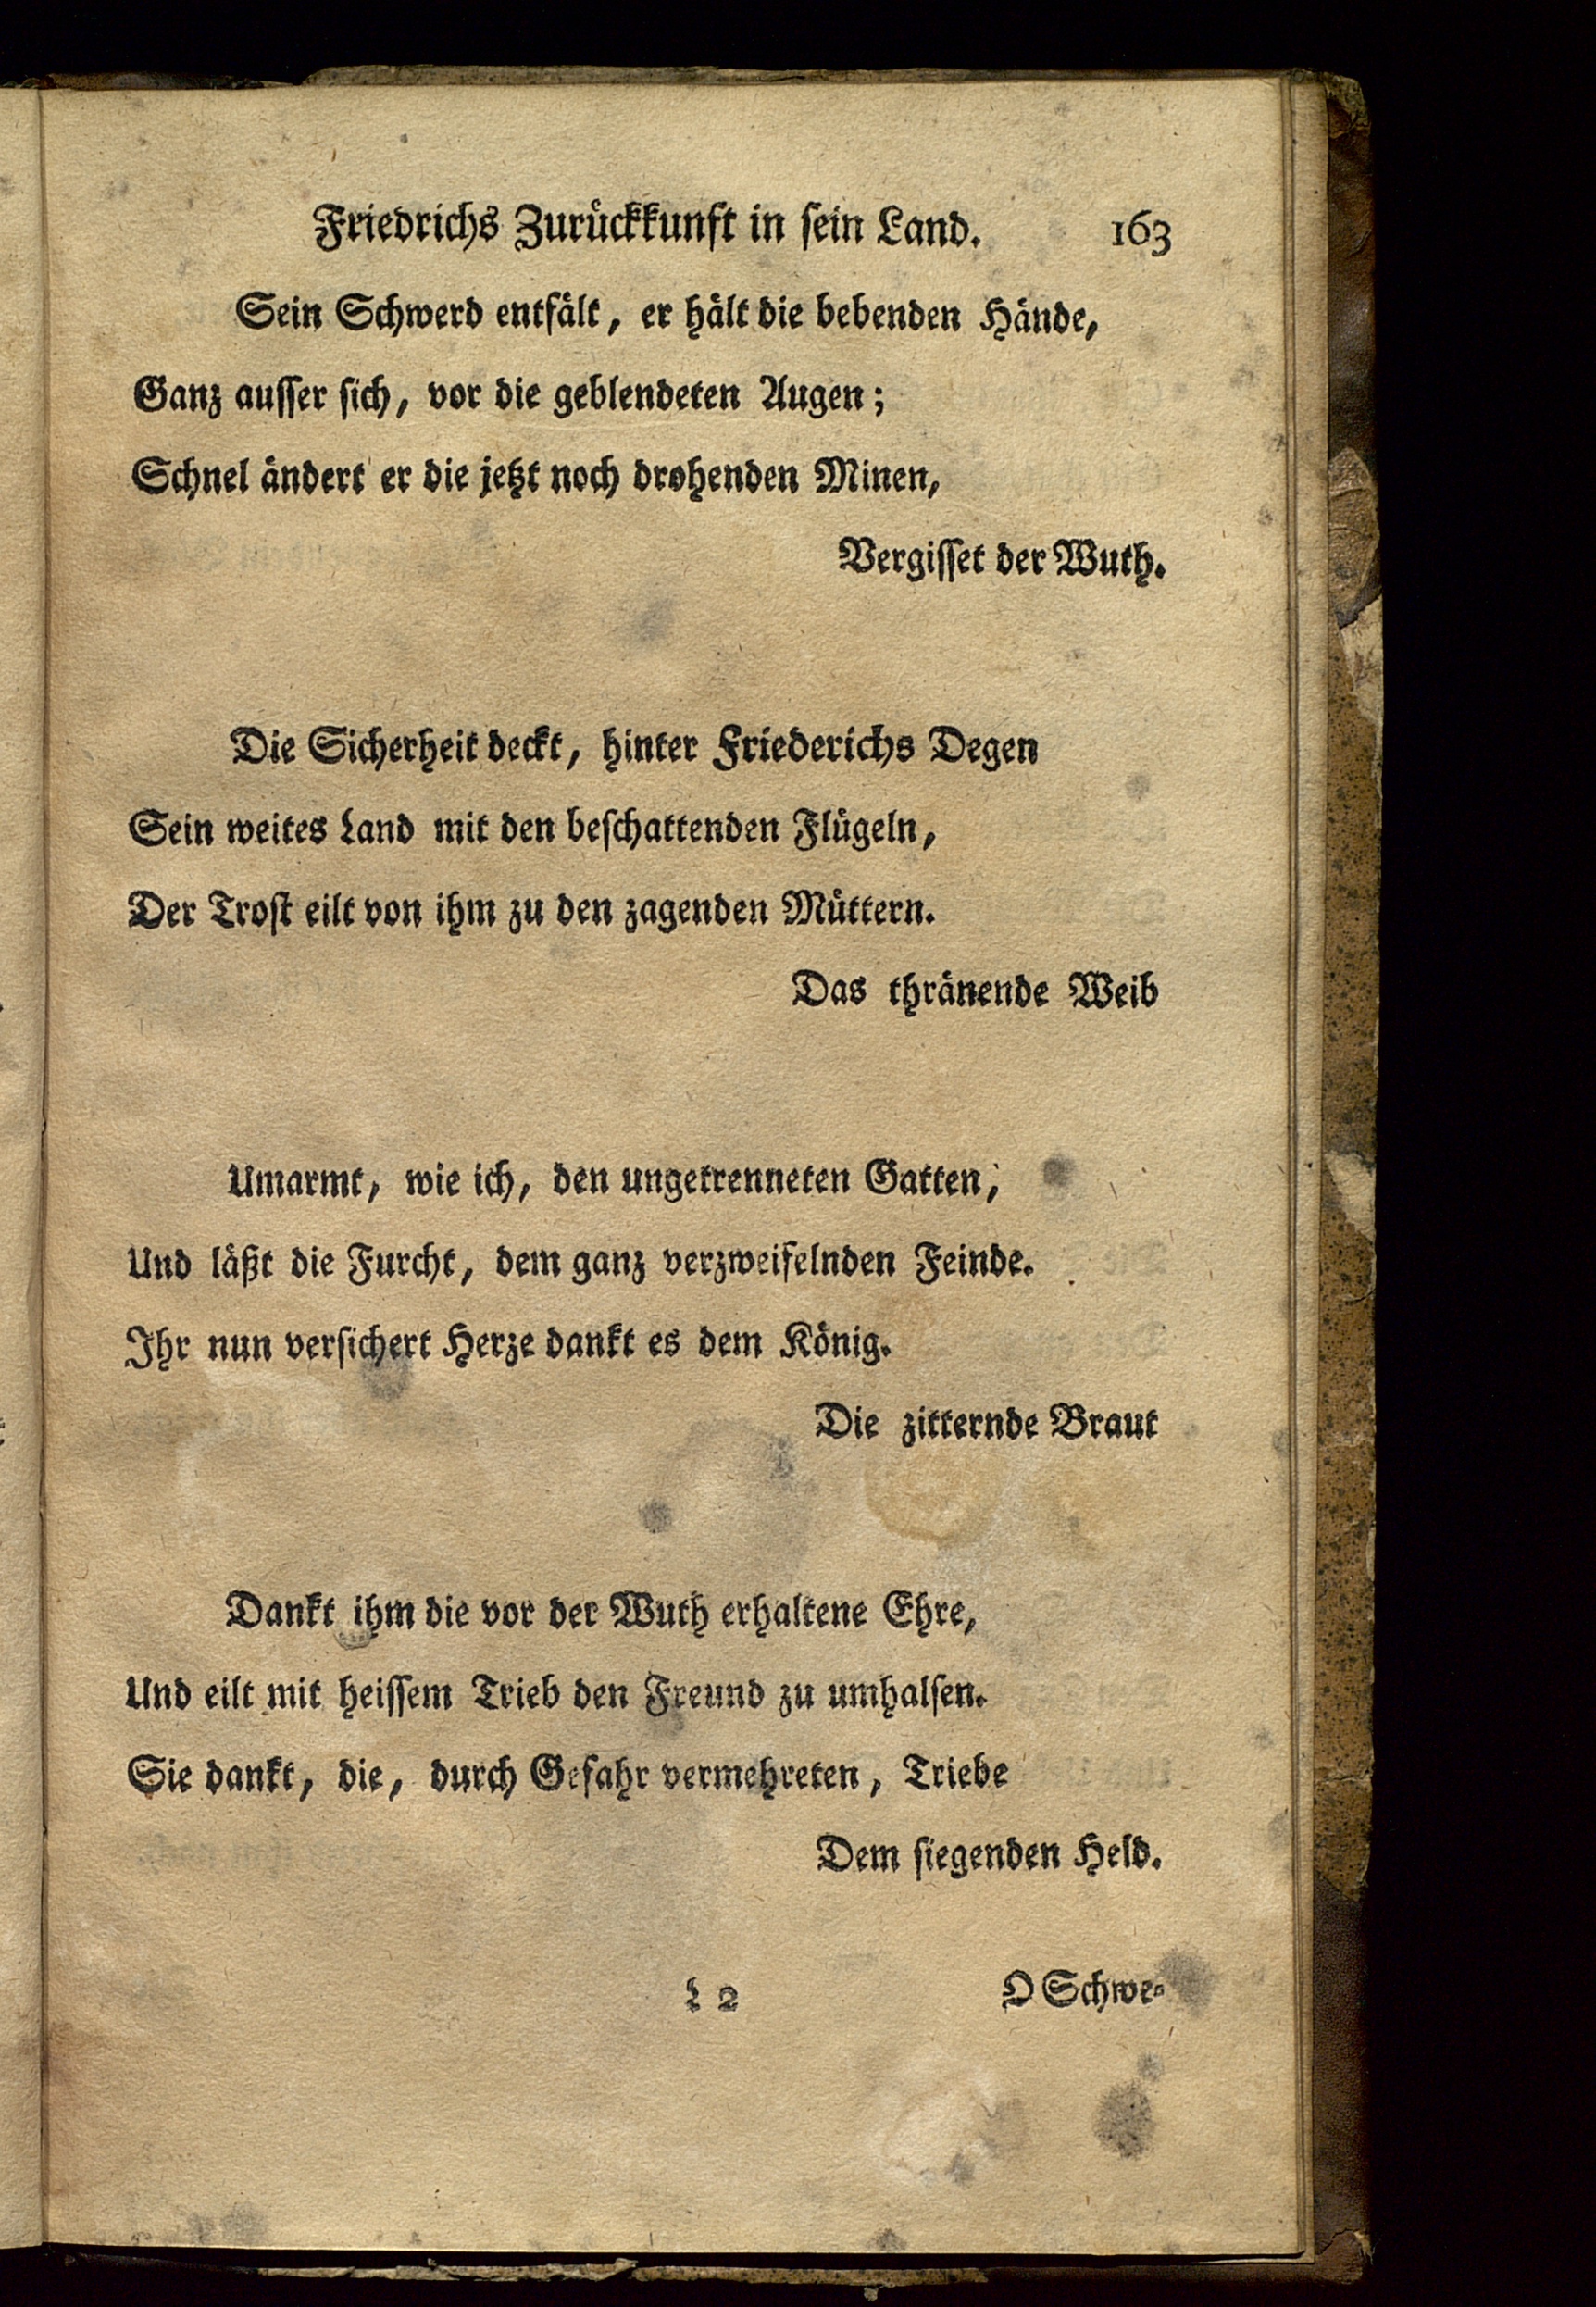 Friedrichs Zurückkunft in sein Land. 163
Sein Schwerd entfält, er hält die bebenden Hände,
Ganz ausser sich, vor die geblendeten Augen;
Schnel ändert er die jetzt noch drohenden Minen,
Vergisset der Wuth.
Die Sicherheit deckt, hinter Friederichs Degen
Sein weites Land mit den beschattenden Flügeln,
Der Trost eilt von ihm zu den zagenden Müttern.
Das thränende Weib
Umarmt, wie ich, den ungetrenneten Gatten;
Und läßt die Furcht, dem ganz verzweifelnden Feinde.
Ihr nun versichert Herze dankt es dem König.
Die zitternde Braut
Dankt ihm die vor der Wuth erhaltene Ehre,
Und eilt mit heissem Trieb den Freund zu umhalsen.
Sie dankt, die, durch Gefahr vermehreten, Triebe
Dem siegenden Held.
L 2 O Schwe-